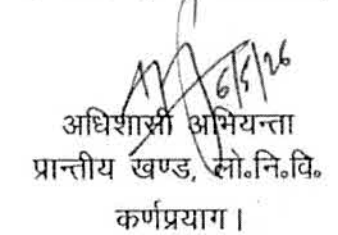 6/5/26
अधिशासी अभियन्ता
प्रान्तीय खण्ड, लो०नि०वि०
कर्णप्रयाग।